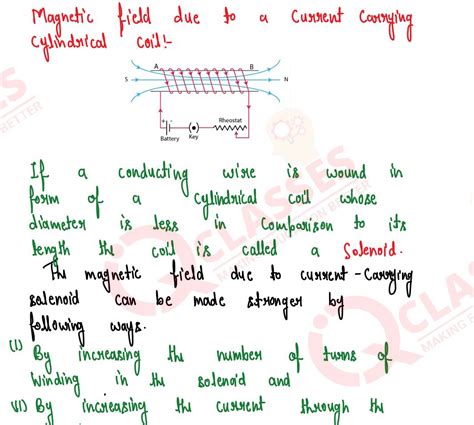 Magnetic field due to a Current Carrying
Cylindrical Coil:-
A B
S N
+ -
Battery Key Rheostat
If a conducting wire is wound in
form of a cylindrical coil whose
diameter is less in Comparison to its
length the coil is called a Solenoid.
The magnetic field due to current-Carrying
solenoid can be made stronger by
following ways.
(I) By increasing the number of turns of
Winding in the solenoid and
VI) By increasing the current through the
CLASSES
BETTER
CLASSES
BETTER
CLASS
MAKING